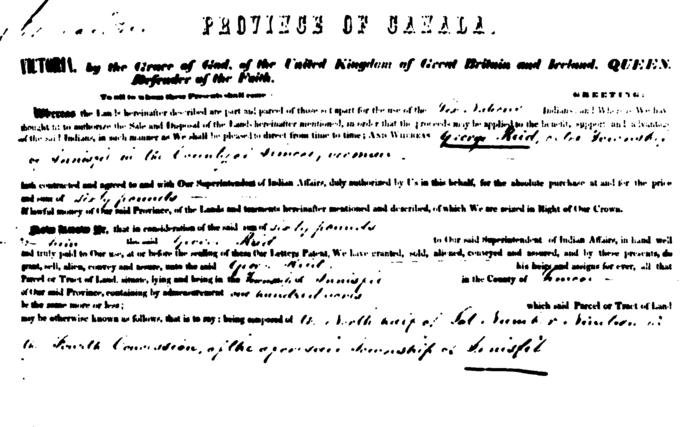 PROVINCE OF CANADA.
VICTORIA, by the Grace of God, of the United Kingdom of Great Britain and Ireland, QUEEN,
Defender of the Faith.
To all to whom these Presents shall come GREETING:
Whereas the Lands hereinafter described are part and parcel of those set apart for the use of the Six Nations Indians, and Whereas We have
thought fit to authorize the Sale and Disposal of the Lands hereinafter mentioned, in order that the proceeds may be applied to the benefit, support and advantage
of the said Indians, in such manner as We shall be pleased to direct from time to time; AND WHEREAS George Reid, of the Township
of Innisfil in the County of Simcoe, yeoman
hath contracted and agreed to and with Our Superintendent of Indian Affairs, duly authorized by Us in this behalf, for the absolute purchase at and for the price
and sum of sixty pounds
of lawful money of Our said Province, of the Lands and tenements hereinafter mentioned and described, of which We are seized in Right of Our Crown.
Know Ye, that in consideration of the said sum of sixty pounds
the said George Reid to Our said Superintendent of Indian Affairs, in hand well
and truly paid to Our use, at or before the sealing of these Our Letters Patent, We have granted, sold, aliened, conveyed and assured, and by these presents, do
grant, sell, alien, convey and assure, unto the said George Reid his heirs and assigns for ever, all that
Parcel or Tract of Land, situate, lying and being in the Township of Innisfil in the County of Simcoe
of Our said Province, containing by admeasurement one hundred acres
be the same more or less; which said Parcel or Tract of Land
may be otherwise known as follows, that is to say: being composed of the North half of Lot Number Nineteen in
the Fourth Concession, of the aforesaid Township of Innisfil